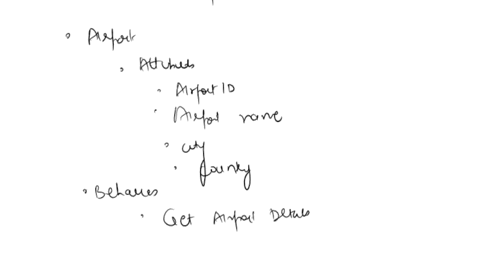 Airport
Attributes
Airport ID
Airport name
city
Country
Behaviors
Get Airport Details